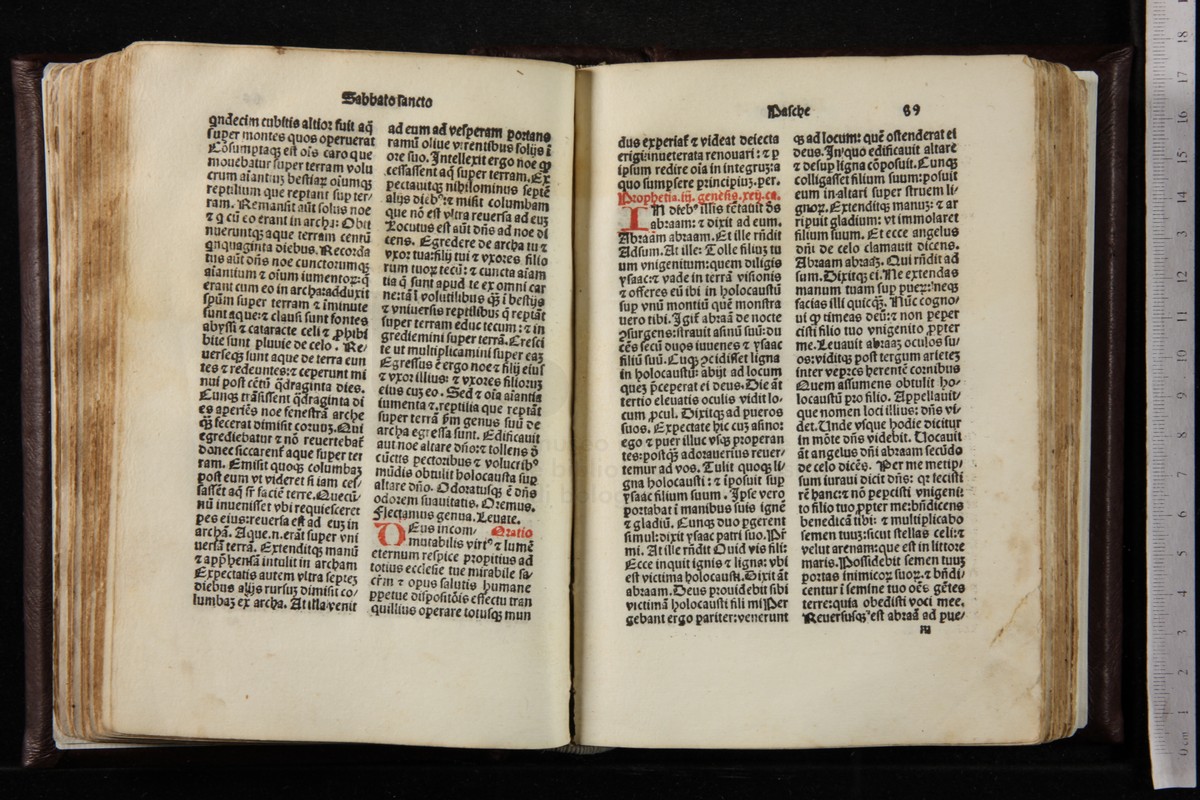 Sabbato sancto
qndecim cubitis altior fuit aq̄
super montes quos operuerat
Cōsumptaqʒ est oīs caro que
mouebatur super terram volu
crum aīantiuʒ bestiaꝝ oīumqʒ
reptilium que reptant sup ter/
ram. Remansit aūt solus noe
⁊ q̄ cū eo erant in archa: Obti
nueruntqʒ aque terram centū
qnquaginta diebus. Recorda
tus aūt dn̄s noe cunctorumqʒ
aīantium ⁊ oīum iumentoꝝ: q̄
erant cum eo in archa: adduxit
spūm super terram ⁊ īminute
sunt aque: ⁊ clausi sunt fontes
abyssi ⁊ cataracte celi ⁊ ꝓhibi
bite sunt pluuie de celo. Re/
uerseqʒ sunt aque de terra eun
tes ⁊ redeuntes: ⁊ ceperunt mi
nui post cētū q̄draginta dies.
Cunqʒ trāsissent q̄draginta di
es aperiēs noe fenestrā arche
q̄ʒ fecerat dimisit coruuʒ. Qui
egrediebatur ⁊ nō reuertebat̄
donec siccarent̄ aque super ter
ram. Emisit quoqʒ columbaʒ
post eum vt videret si iam ces/
sassēt aq̄ sr̄ faciē terre. Quecū
nū inuenisset vbi requiesceret
pes eius: reuersa est ad euʒ in
archā. Aque.n.erāt super vni
uersā terrā. Extenditqʒ manū
⁊ app̄hensā intulit in archam
Expectatis autem vltra septeʒ
diebus alijs rursuʒ dimisit co/
lumbaʒ ex archa. At illa venit
ad eum ad vesperam portans
ramū oliue virentibus folijs ī
ore suo. Intellexit ergo noe ꝙ
cessassent aq̄ super terram. Ex
pectauitqʒ nihilominus septē
alijs diebꝰ: ⁊ misit columbam
que nō est vltra reuersa ad euʒ
Locutus est aūt dn̄s ad noe di
cens. Egredere de archa tu ⁊
vxor tua: filij tui ⁊ vxores filio
rum tuoꝝ tecū: ⁊ cuncta aīam
tia q̄ sunt apud te ex omni car
ne: tā ī volutilibus q̄ʒ ī bestijs
⁊ vniuersis reptilibus q̄ reptāt
super terram educ tecum: ⁊ in
grediemini super terrā. Cresci
te ⁊ multiplicamini super eaʒ
Egressus ē ergo noe ⁊ filij eius
⁊ vxor illius: ⁊ vxores filioruʒ
eius cuʒ eo. Sed ⁊ oīa aīantia
iumenta ⁊ reptilia que reptāt
super terrā ẜm genus suū de
archa egressa sunt. Edificauit
aut noe altare dn̄o: ⁊ tollens d̄
cūctis pectoribus ⁊ volucribꝰ
mūdis obtulit holocausta sup
altare dn̄o. Odoratusqʒ ē dn̄s
odorem suauitatis. Oremus.
Flectamus genua. Leuate.
Oratio
DEus incom/
mutabilis virtꝰ ⁊ lumē
eternum respice propitius ad
totius ecclesie tue mirabile sa/
cr̄m ⁊ opus salutis humane
ꝑpetue dispositōis effectu tran
quillius operare totusqʒ mun
Pasche 89
dus experiat̄ ⁊ videat deiecta
erigi: inueterata renouari: ⁊ ꝑ
ipsum redire oīa in integruʒ: a
quo sumpsere principiuʒ. per.
Prophetia.iij. genesis.xxij.ca.
IN diebꝰ illis tētauit dn̄s
abraam: ⁊ dixit ad eum.
Abraam abraam. Et ille rn̄dit
Adsum. At ille: Tolle filiuʒ tu
um vnigenitum: quem diligis
ysaac: ⁊ vade in terrā visionis
⁊ offeres eū ibi in holocaustū
sup vnū montiū quē monstra
uero tibi. Igit̄ abraā de nocte
ꝯsurgens: strauit asinū suū: du
cēs secū duos iuuenes ⁊ ysaac
filiū suū. Cuqʒ ꝯcidisset ligna
in holocaustū: abijt ad locum
queʒ p̄ceperat ei deus. Die āt
tertio eleuatis oculis vidit lo/
cum ꝓcul. Dixitqʒ ad pueros
suos. Expectate hic cuʒ asino:
ego ⁊ puer illuc vsqʒ properan
tes: postqʒ adorauerius reuer/
temur ad vos. Tulit quoqʒ li/
gna holocausti: ⁊ īposuit sup
ysaac filium suum. Ipse vero
portabat ī manibus suis ignē
⁊ gladiū. Cunqʒ duo ꝑgerent
simul: dixit ysaac patri suo. Pr̄
mi. At ille rn̄dit Quid vis fili:
Ecce inquit ignis ⁊ ligna: vbi
est victima holocausti. Dixit āt
abraam. Deus prouidebit sibi
victimā holocausti fili mi Per
gebant ergo pariter: venerunt
qʒ ad locum: quē ostenderat ei
deus. In quo edificauit altare
⁊ desuꝑ ligna cōposuit. Cunqʒ
colligasset filium suum: posuit
eum in altari super struem li/
gnoꝝ. Extenditqʒ manuʒ: ⁊ ar
ripuit gladium: vt immolaret
filium suum. Et ecce angelus
dn̄i de celo clamauit dicens.
Abraam abraaʒ. Qui rn̄dit ad
sum. Dixitqʒ ei. Ne extendas
manum tuam sup pueꝝ: neqʒ
facias illi quicqʒ. Nūc cogno/
ui ꝙ timeas deū: ⁊ non peper
cisti filio tuo vnigenito ꝓpter
me. Leuauit abraaʒ oculos su/
os: viditqʒ post tergum arieteʒ
inter vepres herentē cornibus
Quem assumens obtulit ho/
locaustū pro filio. Appellauit/
que nomen loci illius: dn̄s vi/
det. Unde vsque hodie dicitur
in mōte dn̄s videbit. Uocauit
āt angelus dn̄i abraam secūdo
de celo dicēs. Per me metip/
sum iuraui dicit dn̄s: qr fecisti
rē hanc: ⁊ nō peꝑcisti vnigeni
to filio tuo ꝓpter me: bn̄dicens
benedicā tibi: ⁊ multiplicabo
semen tuuʒ: sicut stellas celi: ⁊
velut arenam: que est in littore
maris. Possidebit semen tuuʒ
portas inimicoꝝ suoꝝ. ⁊ bn̄di/
centur ī semine tuo oēs gētes
terre: quia obedisti voci mee.
Reuersusqʒ est abraā ad pue/
m